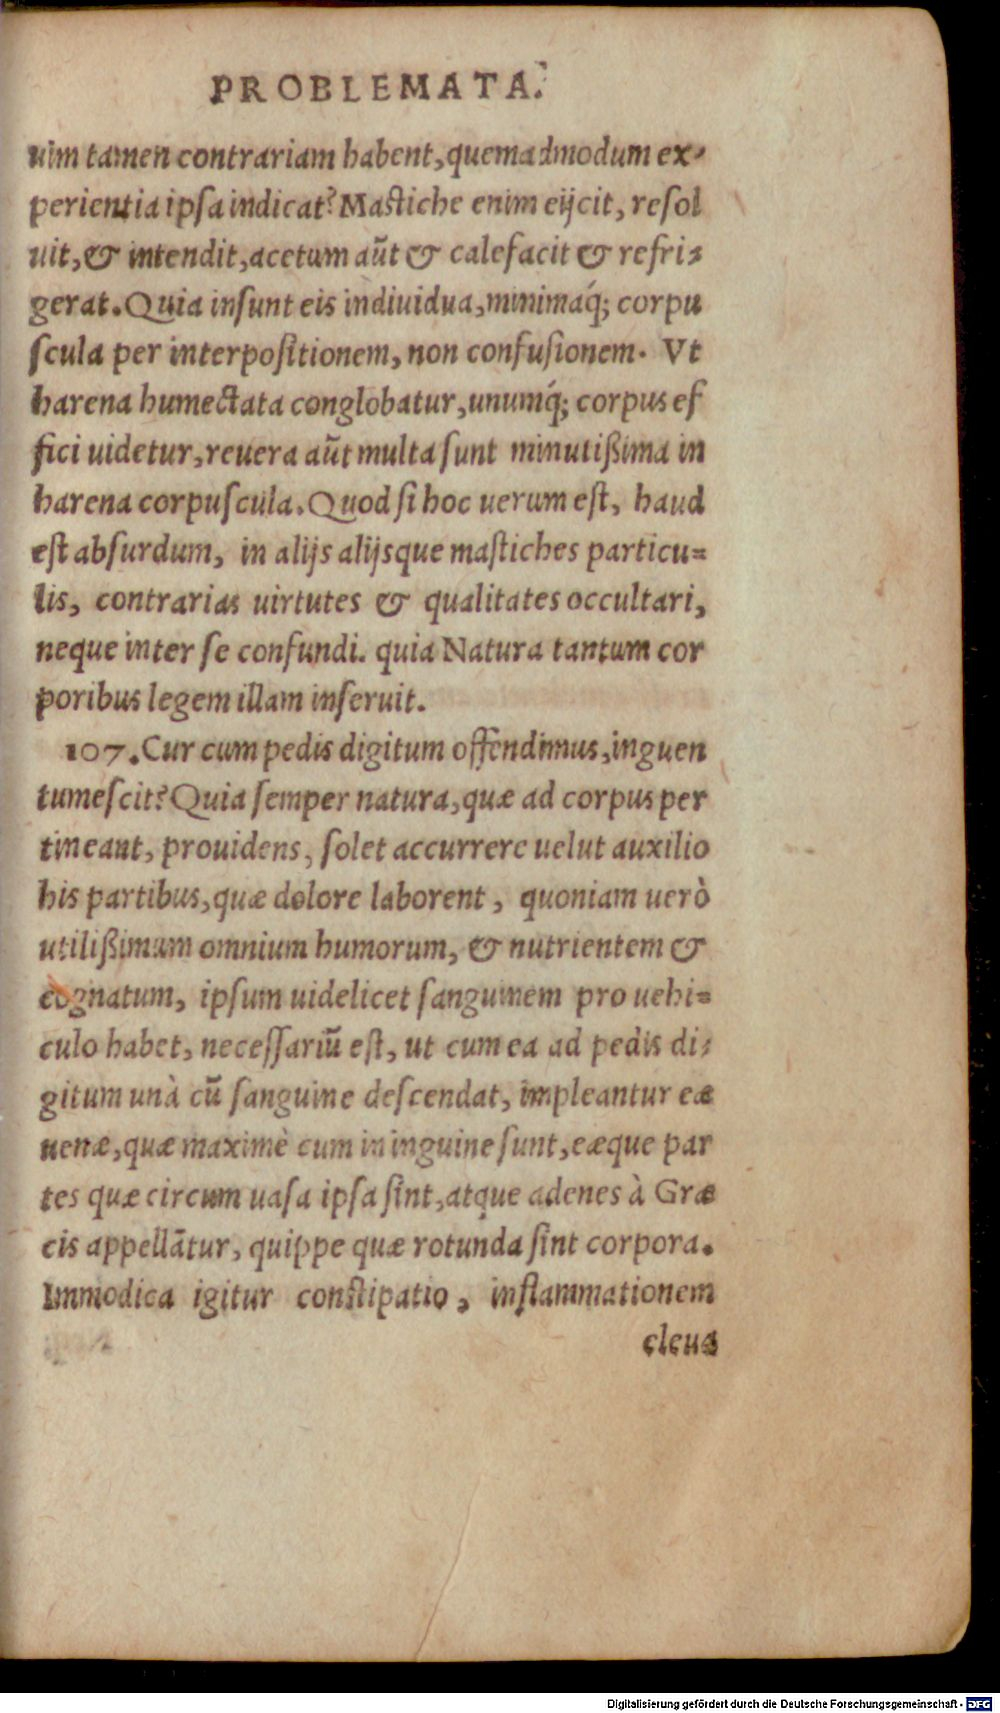 PROBLEMATA.
uim tamen contrariam habent, quemadmodum ex-
perientia ipsa indicat? Mastiche enim eijcit, resol
uit, & intendit, acetum aūt & calefacit & refri-
gerat. Quia insunt eis indiuidua, minimaq́; corpu
scula per interpositionem, non confusionem. Vt
harena humectata conglobatur, unumq́; corpus ef
fici uidetur, reuera aūt multa sunt minutißima in
harena corpuscula. Quod si hoc uerum est, haud
est absurdum, in alijs alijsque mastiches particu=
lis, contrarias uirtutes & qualitates occultari,
neque inter se confundi. quia Natura tantum cor
poribus legem illam inseruit.
107. Cur cum pedis digitum offendimus, inguen
tumescit? Quia semper natura, quæ ad corpus per
tineant, prouidens, solet accurrere uelut auxilio
his partibus, quæ dolore laborent, quoniam uerò
utilißimum omnium humorum, & nutrientem &
cognatum, ipsum uidelicet sanguinem pro uehi=
culo habet, necessariū est, ut cum ea ad pedis di-
gitum unà cū sanguine descendat, impleantur eæ
uenæ, quæ maximè cum in inguine sunt, eæque par
tes quæ circum uasa ipsa sint, atque adenes à Græ
cis appellātur, quippe quæ rotunda sint corpora.
Immodica igitur constipatio, inflammationem
eleua
Digitalisierung gefördert durch die Deutsche Forschungsgemeinschaft - DFG